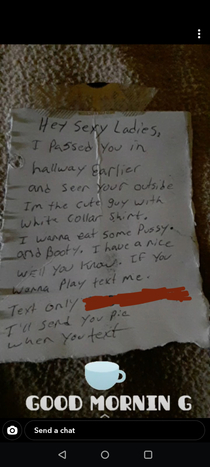 Hey Sexy Ladies,
I Passed you in
hallway Earlier
and seen your outside
Im the cute guy with
White Collar Shirt.
I wanna eat some Pussy.
and Booty. I have a nice
well you know. If You
wanna Play text me.
Text only
I'll send you pic
when you text
GOOD MORNIN G
Send a chat